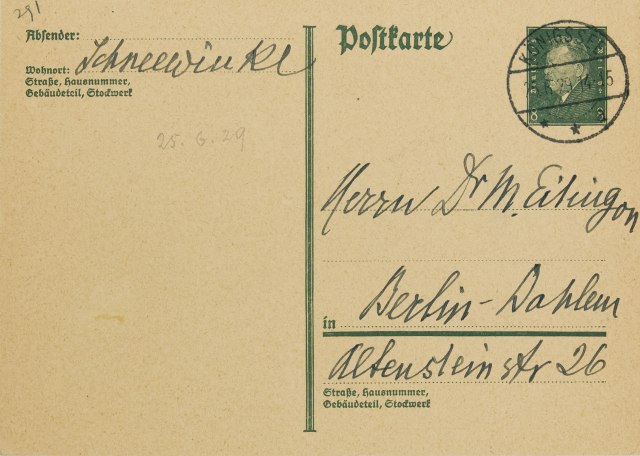 291
Absender:
Schneewinkl
Wohnort:
Straße, Hausnummer,
Gebäudeteil, Stockwerk
25. 6. 29
Postkarte
KÖNIGSSEE
29.14-15
8 8
Herrn Dr M. Eitingon
Berlin-Dahlem
in
Altensteinstr 26
Straße, Hausnummer,
Gebäudeteil, Stockwerk